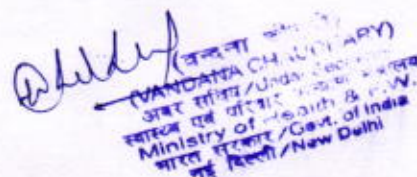 (वन्दना
(VANDANA CHAUDHARY)
अवर सचिव/Under
स्वास्थ्य एवं परिवार
Ministry of Health & F.W.
भारत सरकार/Govt. of India
नई दिल्ली/New Delhi